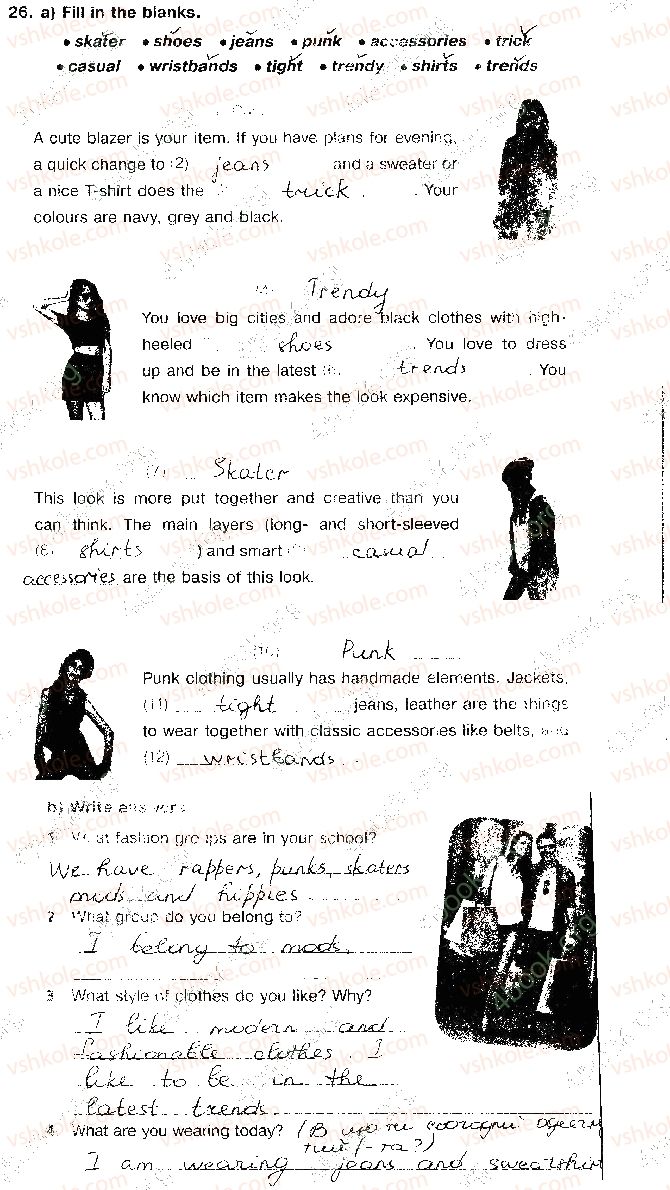 26. a) Fill in the blanks.
• skater • shoes • jeans • punk • accessories • trick
• casual • wristbands • tight • trendy • shirts • trends
A cute blazer is your item. If you have plans for evening,
a quick change to (2) jeans and a sweater or
a nice T-shirt does the trick. Your
colours are navy, grey and black.
Trendy
You love big cities and adore black clothes with high-
heeled shoes. You love to dress
up and be in the latest trends. You
know which item makes the look expensive.
Skater
This look is more put together and creative than you
can think. The main layers (long- and short-sleeved
(8) shirts) and smart casual
accessories are the basis of this look.
Punk
Punk clothing usually has handmade elements. Jackets,
(11) tight jeans, leather are the things
to wear together with classic accessories like belts, and
(12) wristbands.
b) Write answers.
1 What fashion groups are in your school?
We have rappers, punks, skaters
mods and hippies
2 What group do you belong to?
I belong to mods.
3 What style of clothes do you like? Why?
I like modern and
fashionable clothes. I
like to be in the
latest trends
4. What are you wearing today? (В що ти сьогодні
I am wearing jeans and sweatshir
vshkole.com
4book.org